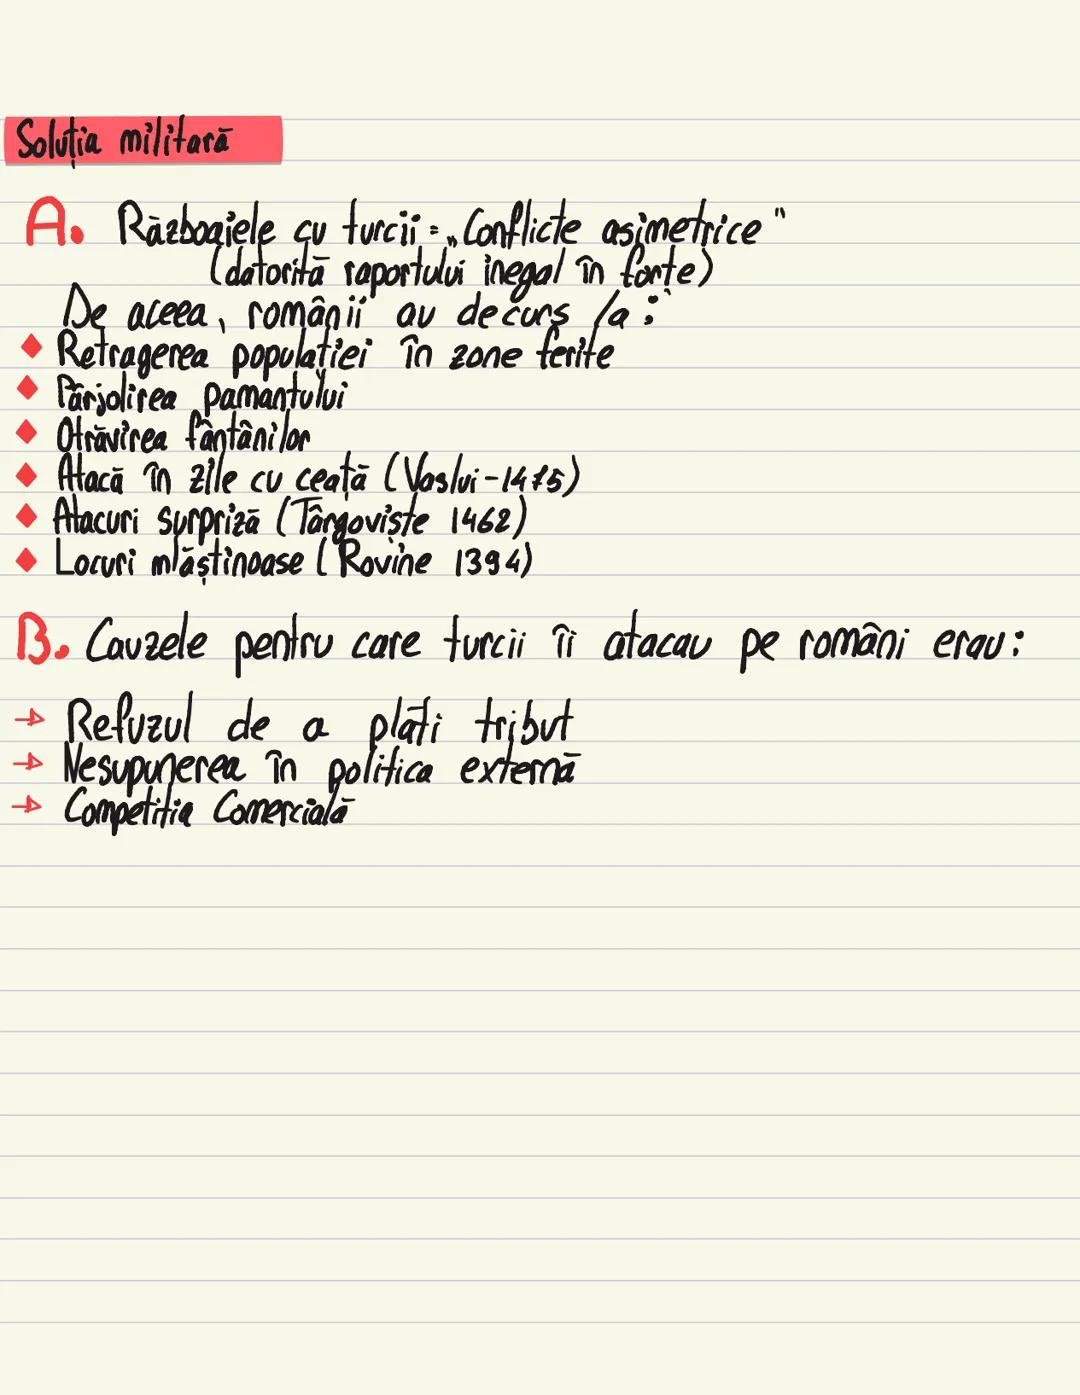 Soluția militară
A. Războaiele cu turcii = „Conflicte asimetrice"
(datorită raportului inegal în forțe)
De aceea, românii au decurs la:
Retragerea populației în zone ferite
Pârjolirea pamantului
Otrăvirea fântânilor
Atacă în zile cu ceață (Vaslui-1475)
Atacuri surpriză (Târgoviște 1462)
Locuri mlăștinoase (Rovine 1394)
B. Cauzele pentru care turcii îi atacau pe români erau:
→ Refuzul de a plăti tribut
→ Nesupunerea în politica externă
→ Competitia Comercială